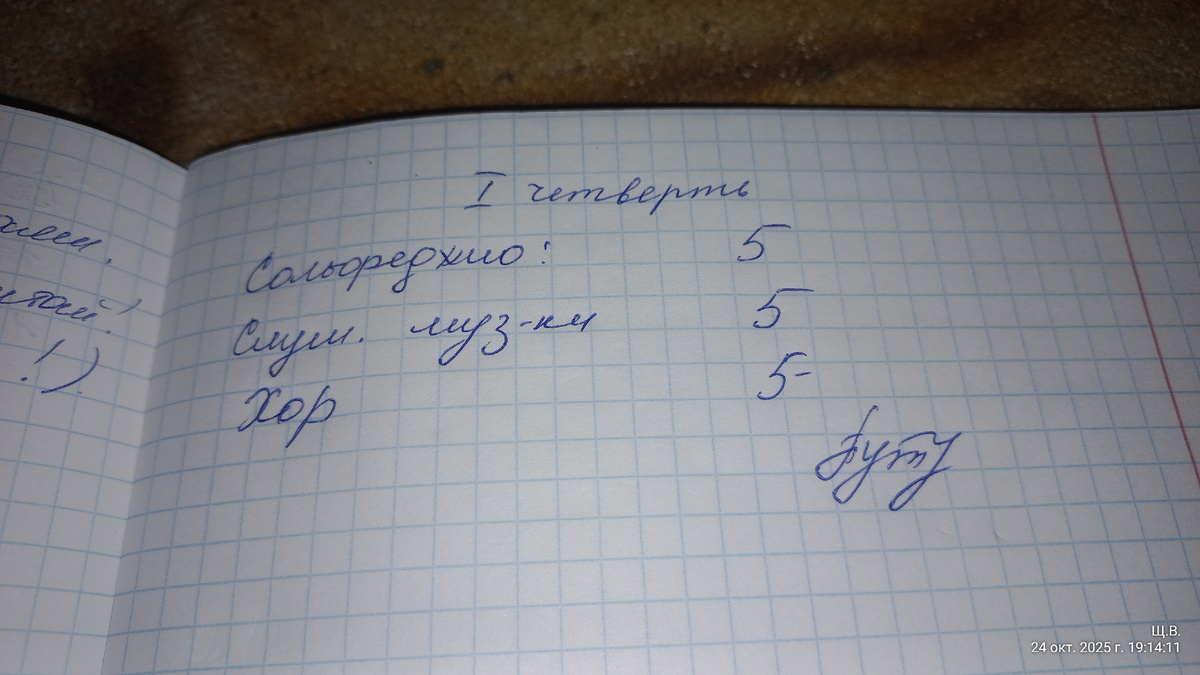 I четверть
Сольфеджио: 5
Слуш. муз-ки 5
Хор 5-
Щ.В.
24 окт. 2025 г. 19:14:11